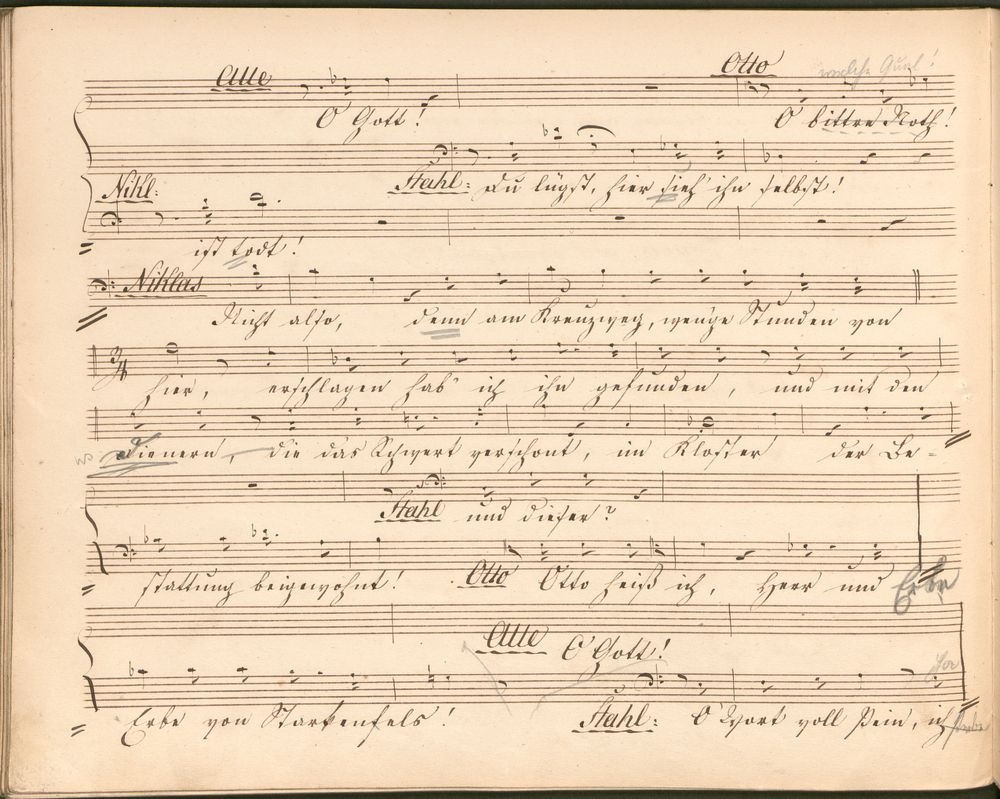 Alle Otto welche Qual!
O Gott! O bittre Noth!
Nikl: Stahl: Du lügst, hier sieh' ihn selbst!
ist todt!
Niklas
Nicht also, denn am Kreuzweg, wen'ge Stunden von
3/4
hier, erschlagen hab' ich ihn gefunden, und mit den
Dienern, die das Schwert verschont, im Kloster der Be=
Stahl und dieser?
stattung beigewohnt! Otto Otto heiß ich, Herr und Erbe
Alle O Gott!
Erbe von Starkenfels! Stahl: O Wort voll Pein, ich sterbe